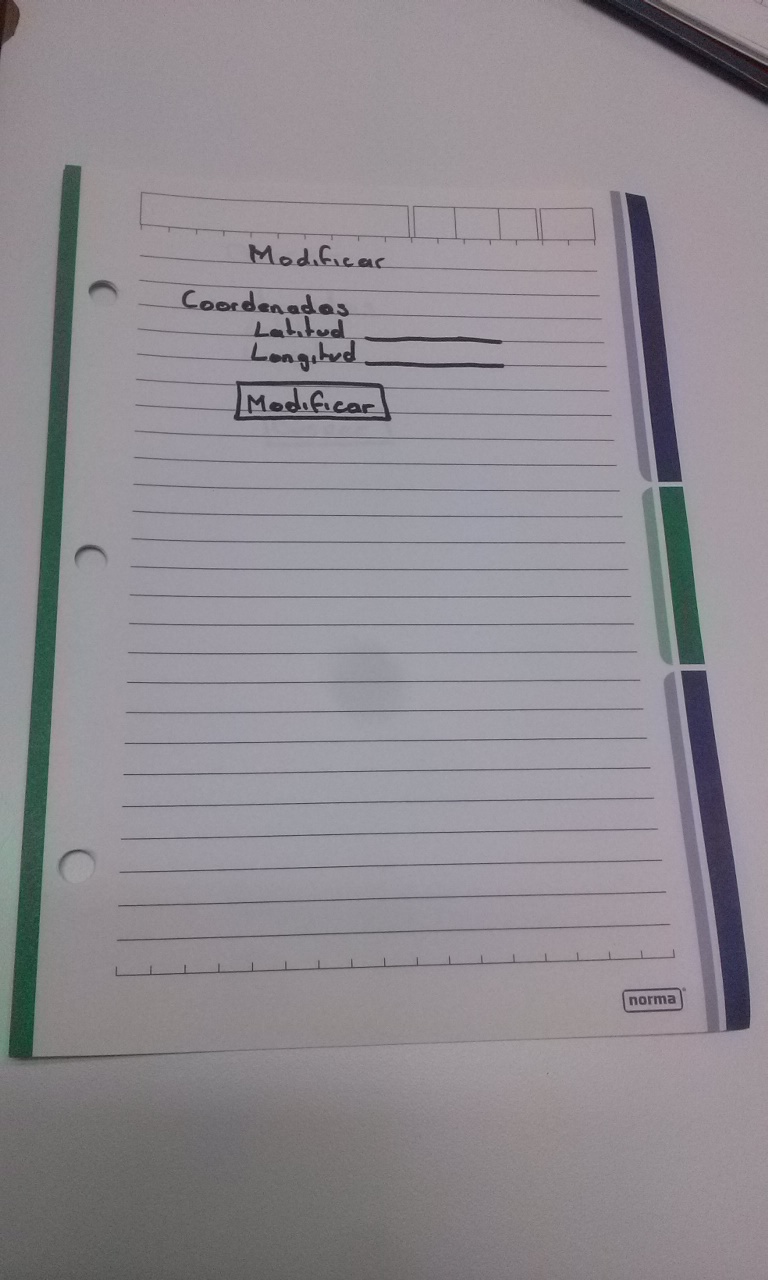 Modificar
Coordenadas
Latitud
Longitud
Modificar
norma